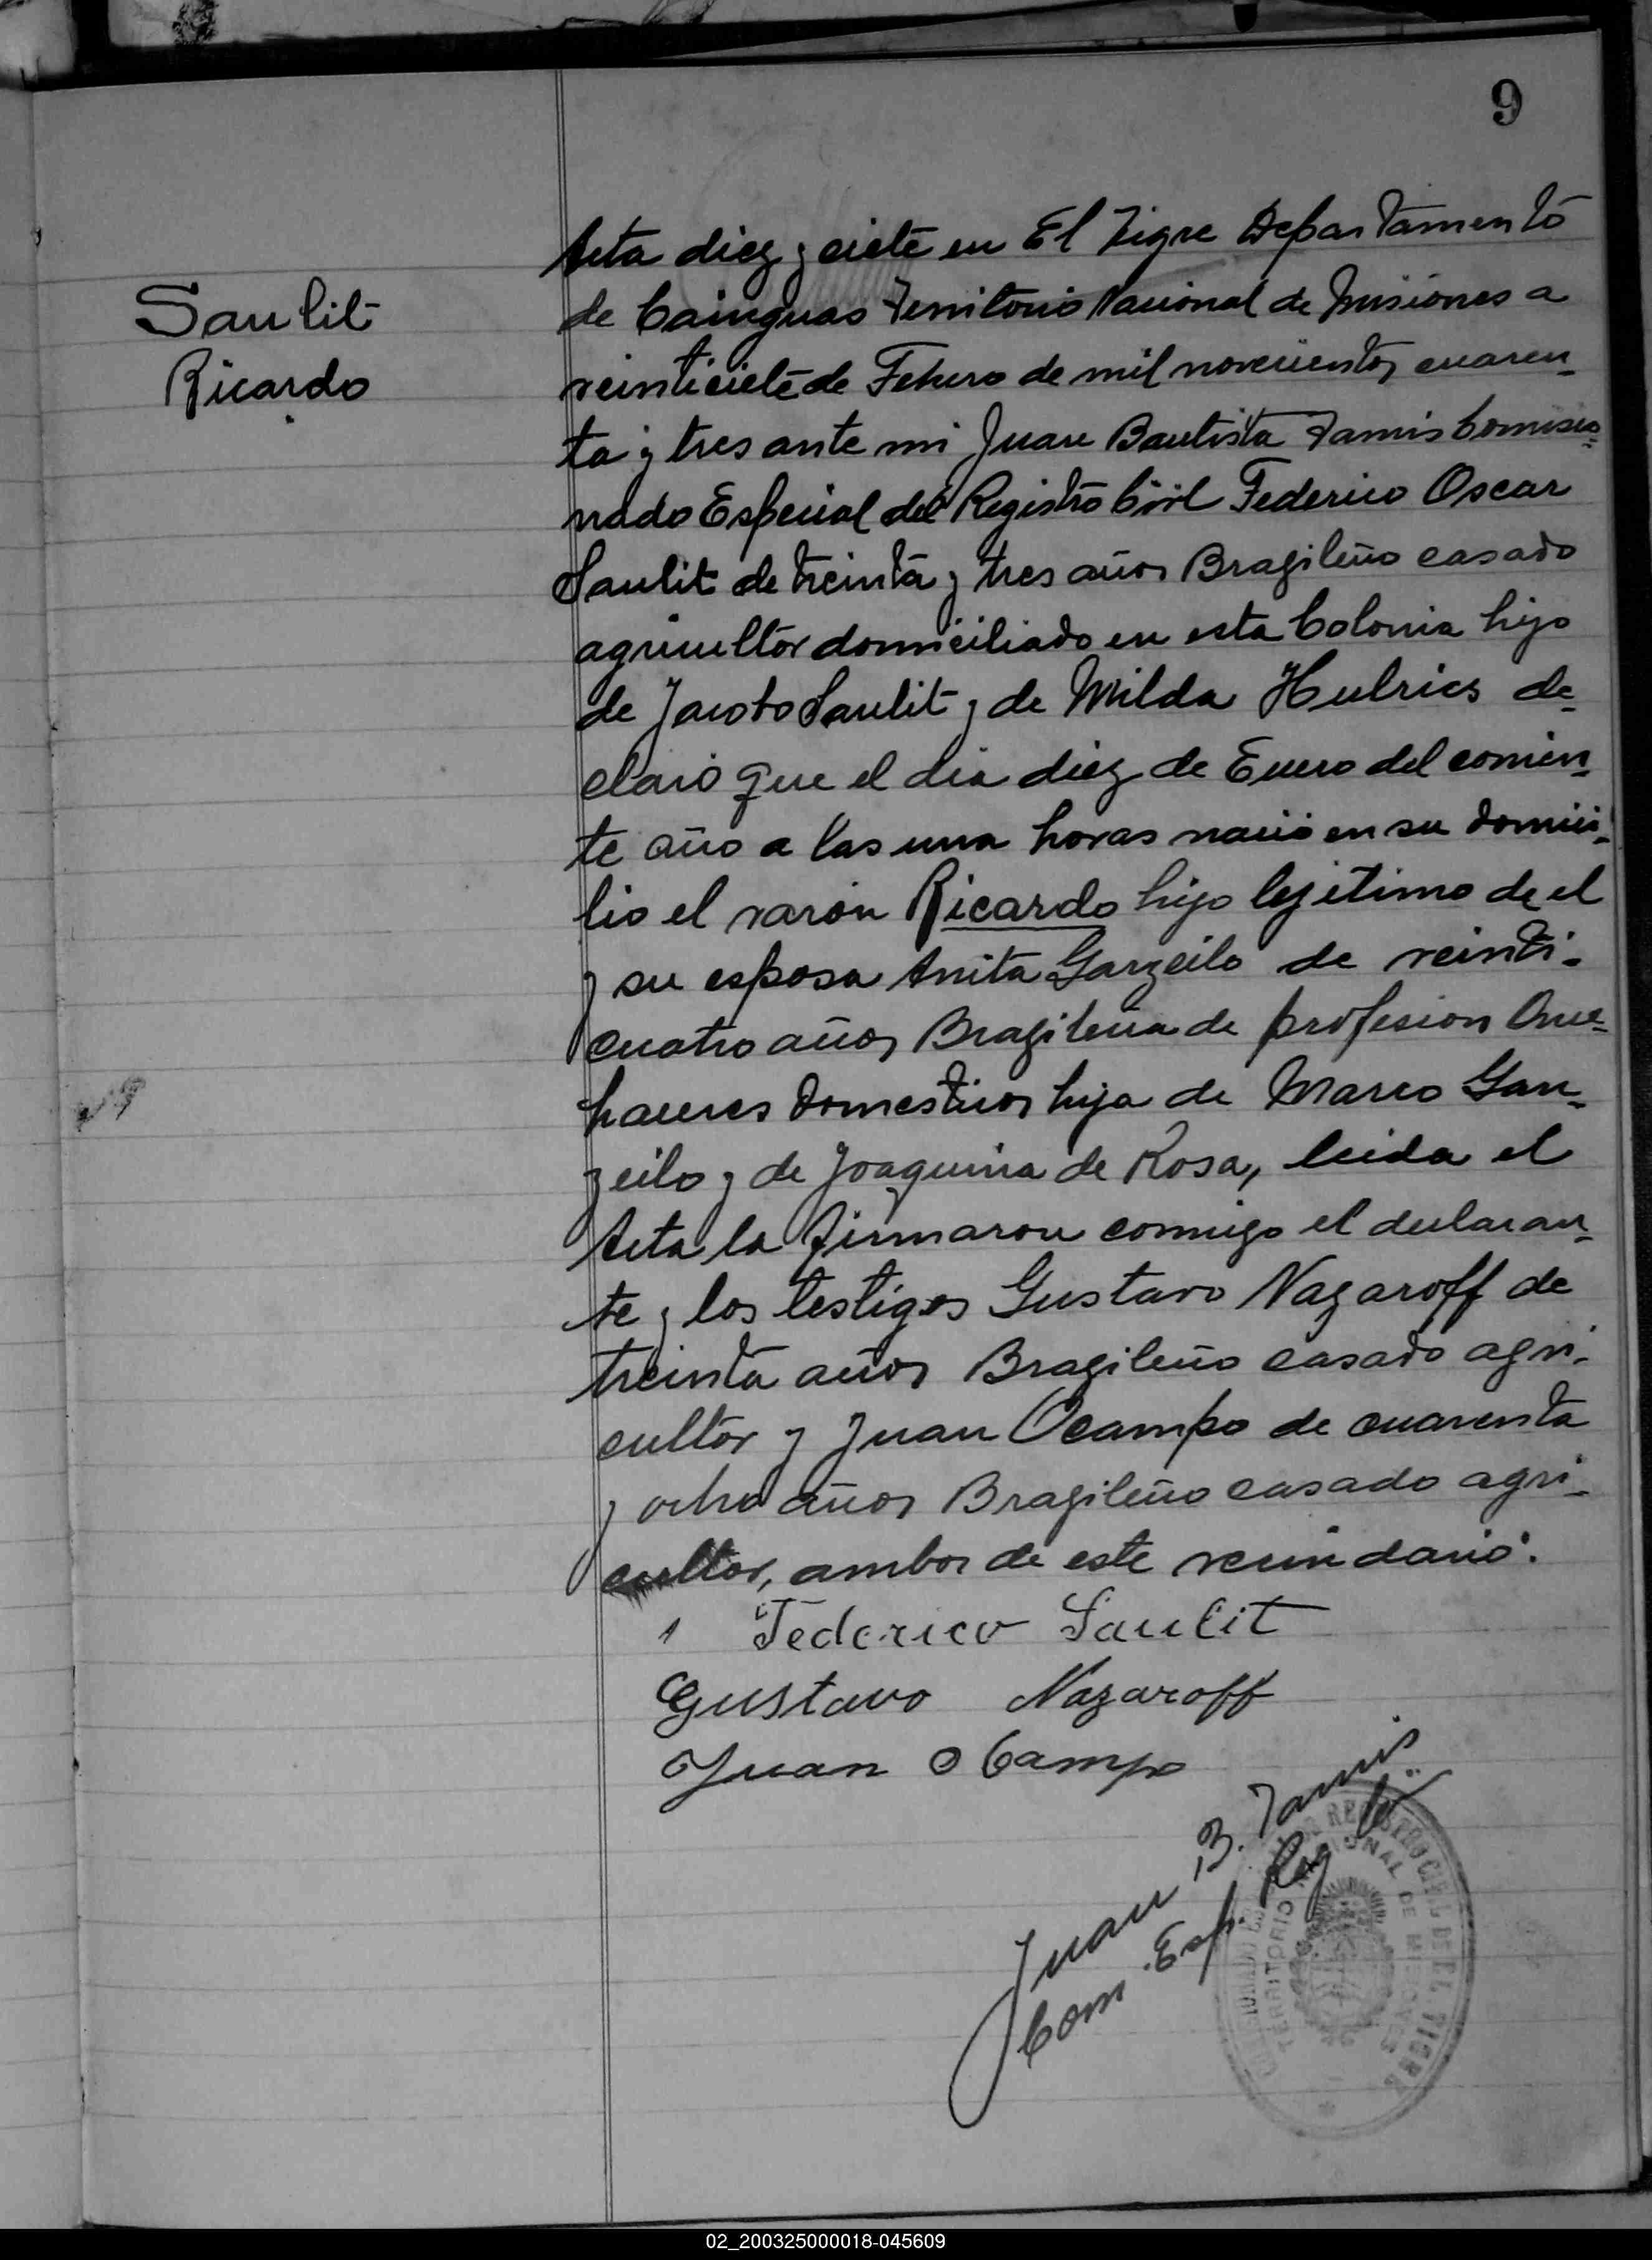 9
Saulit
Ricardo
Acta diez y siete en El Tigre Departamento
de Cainguas Territorio Nacional de Misiones a
veintisiete de Febrero de mil novecientos cuaren-
ta y tres ante mi Juan Bautista Tamis Comisio-
nado Especial del Registro Civil Federico Oscar
Saulit de treinta y tres años Brazileño casado
agricultor domiciliado en esta Colonia hijo
de Jacobo Saulit y de Milda Hulrics de-
claró que el dia diez de Enero del corrien-
te año a las una horas nació en su domici-
lio el varón Ricardo hijo lejitimo de el
y su esposa Anita Garzeilo de veinti-
cuatro años Brazileña de profesion Que-
haceres domesticos hija de Marco Gar-
zeilo y de Joaquina de Rosa, leida el
Acta la firmaron conmigo el declaran-
te y los testigos Gustavo Nazaroff de
treinta años Brazileño casado agri-
cultor y Juan Ocampo de cuarenta
y ocho años Brazileño casado agri-
cultor, ambos de este vecindario.
Federico Saulit
Gustavo Nazaroff
Juan Ocampo
Juan B. Tamis
Com. Esp. Reg. C.
REGISTRO CIVIL DE EL TIGRE
TERRITORIO NACIONAL DE MISIONES
02_200325000018-045609